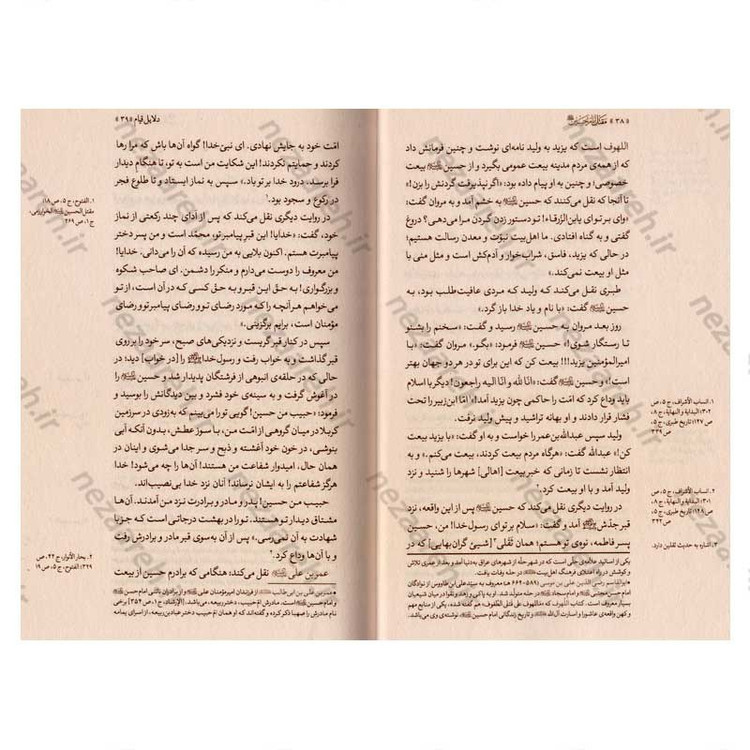 « ۳۸ » مقتل امام حسین
اللهوف است که یزید به ولید نامه‌ای نوشت و چنین فرمانش داد
که از همه‌ی مردم مدینه بیعت عمومی بگیرد و از حسین بیعت
خصوصی؛ و چنین به او پیام داده بود: «اگر نپذیرفت گردنش را بزن!»
تا آنجا که نقل می‌کنند که حسین به خشم آمد و به مروان گفت:
«وای بر تو ای یابن الزّرقا! تو دستور زدن گردن مرا می‌دهی؟ دروغ
گفتی و به گناه افتادی. ما اهل‌بیت نبوّت و معدن رسالت هستیم؛
در حالی که یزید، فاسق، شراب‌خوار و آدم‌کش است و مثل منی با
مثل او بیعت نمی‌کند.»
طبری نقل می‌کند که ولید که مردی عافیت‌طلب بود، به
حسین گفت: «با نام و یاد خدا بازگرد.»
روز بعد مروان به حسین رسید و گفت: «سخنم را بشنو
تا رستگار شوی!» حسین فرمود: «بگو.» مروان گفت: «با
امیرالمؤمنین یزید!!! بیعت کن که این برای تو در هر دو جهان بهتر
است!» و حسین گفت: «انّا لله و انّا الیه راجعون! دیگر با اسلام
باید وداع کرد که امّت را حاکمی چون یزید آمد!» امّا ابن‌زبیر را تحت
فشار قرار دادند و او بهانه تراشید و پیش ولید نرفت.
ولید سپس عبدالله‌بن‌عمر را خواست و به او گفت: «با یزید بیعت
کن!» عبدالله گفت: «هرگاه مردم بیعت کردند، بیعت می‌کنم.» و به
انتظار نشست تا زمانی که خبر بیعت [اهالی] شهرها را شنید و نزد
ولید آمد و با او بیعت کرد.۲
در روایت دیگری نقل می‌کنند که حسین پس از این واقعه، نزد
قبر جدّش آمد و گفت: «سلام بر تو ای رسول خدا! من، حسین
پسر فاطمه، نوه‌ی تو هستم؛ همان ثَقَلی۳ [شیئ گران‌بهایی] که در
۱. انساب الأشراف، ج ۵، ص
۳۰۲؛ البدایة و النهایة، ج ۸،
ص ۱۴۷؛ تاریخ طبری، ج ۵،
ص ۳۳۹
۲. انساب الأشراف، ج ۵، ص
۳۰۱؛ البدایة و النهایة، ج ۸،
ص ۱۴۸؛ تاریخ طبری، ج ۵،
ص ۳۴۲
۳. اشاره به حدیث ثقلین دارد.
دلایل قیام « ۳۹ »
امّت خود به جایش نهادی. ای نبیّ خدا! گواه آن‌ها باش که مرا رها
کردند و حمایتم نکردند! این شکایت من به تو، تا هنگام دیدار
فرا برسد، درود خدا بر تو باد.» سپس به نماز ایستاد و تا طلوع فجر
در رکوع و سجود بود.۱
در روایت دیگری نقل می‌کند که پس از ادای چند رکعتی از نماز
خود، گفت: «خدایا! این قبر پیامبر تو، محمّد است و من پسر دختر
پیامبرت هستم. اکنون بلایی به من رسیده که آن را می‌دانی. خدایا!
من معروف را دوست می‌دارم و منکر را دشمن. ای صاحب شکوه
و بزرگواری! به حق این قبر و به حق کسی که در آن است، از تو
می‌خواهم هر آنچه را که مورد رضای تو و رضای پیامبر تو و رضای
مؤمنان است، برایم برگزینی.»
سپس در کنار قبر گریست و نزدیکی‌های صبح، سر خود را بر روی
قبر گذاشت و به خواب رفت و رسول خدا را [در خواب] دید؛ در
حالی که در حلقه‌ی انبوهی از فرشتگان پدیدار شد و حسین را
در آغوش گرفت و به سینه‌ی خود فشرد و بین دیدگانش را بوسید و
فرمود: «حبیب من حسین! گویی تو را می‌بینم که به‌زودی در سرزمین
کربلا در میان گروهی از امّت من، با سوز عطش، بدون آنکه آبی
بنوشی، در خون خود آغشته و ذبح و سر جدا می‌شوی و اینان در
همان حال، امیدوار شفاعت من هستند! آن‌ها را چه می‌شود! خدا
هرگز شفاعتم را به ایشان نرساند! آنان نزد خدا بی‌نصیب‌اند.
حبیب من حسین! پدر و مادر و برادرت نزد من آمدند. آن‌ها
مشتاق دیدار تو هستند. تو را در بهشت درجاتی است که جز با
شهادت به آن نمی‌رسی.» پس از آن به‌سوی قبر مادر و برادرش رفت
و با آن‌ها وداع کرد.۲
عمر بن علی نقل می‌کند: هنگامی که برادرم حسین از بیعت
۱. الفتوح، ج ۵، ص ۱۸؛
مقتل الحسین خوارزمی،
ج ۱، ص ۲۶۹
۲. بحار الأنوار، ج ۴۴، ص
۳۲۹؛ الفتوح، ج ۵، ص ۱۹
nezareh.ir